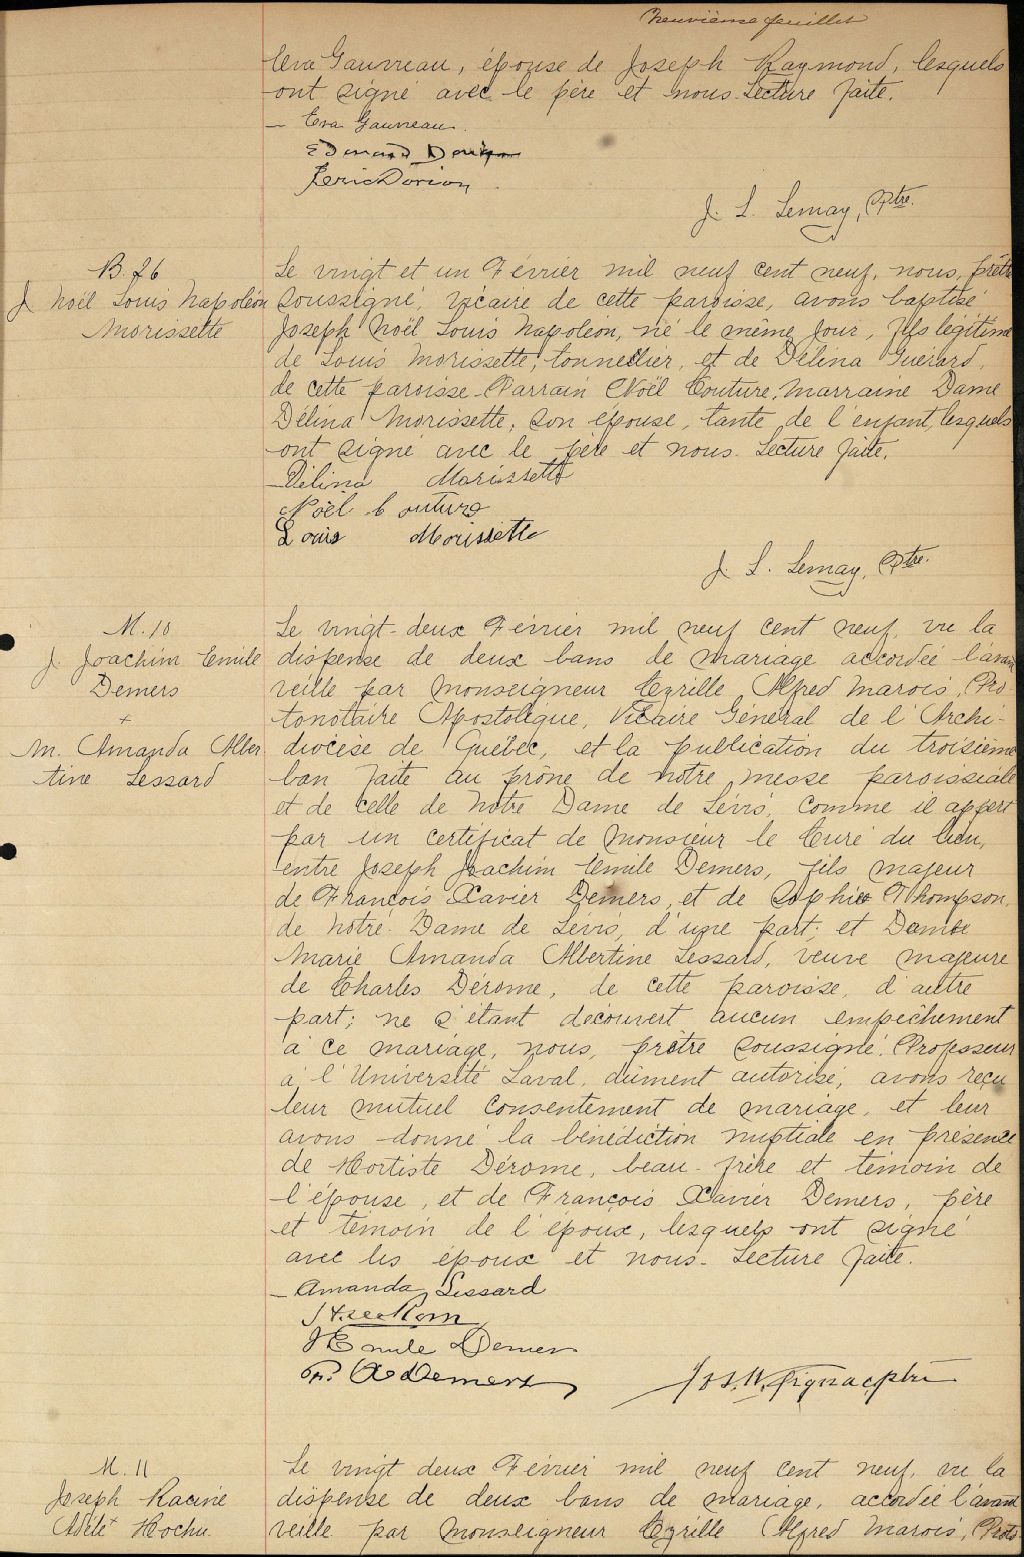 Neuvième feuillet
Eva Gauvreau, épouse de Joseph Raymond, lesquels
ont signé avec le père et nous. Lecture faite.
— Eva Gauvreau.
Eric Dorion
J. L. Lemay, Ptre.
B. 26
J. Noël Louis Napoléon
Morissette
Le vingt et un Février mil neuf cent neuf, nous, prêtre
soussigné, vicaire de cette paroisse, avons baptisé
Joseph Noël Louis Napoléon, né le même jour, fils légitime
de Louis Morissette, tonnellier, et de Délina Guérard,
de cette paroisse. Parrain Noël Couture, Marraine Dame
Délina Morissette, son épouse, tante de l'enfant, lesquels
ont signé avec le père et nous. Lecture faite.
— Délina Morissette
Noël Couture
Louis Morissette
J. L. Lemay, Ptre.
M. 10
J. Joachim Emile
Demers
+
M. Amanda Alber
tine Lessard
Le vingt-deux Février mil neuf cent neuf, vu la
dispense de deux bans de mariage accordée l'avant
veille par Monseigneur Cyrille Alfred Marois, Pro-
tonotaire Apostolique, Vicaire Général de l'Archi-
diocèse de Québec, et la publication du troisième
ban faite au prône de notre messe paroissiale
et de celle de Notre Dame de Lévis, comme il appert
par un certificat de Monsieur le Curé du lieu,
entre Joseph Joachim Emile Demers, fils majeur
de François Xavier Demers, et de Sophie Thompson,
de Notre Dame de Lévis, d'une part; et Dame
Marie Amanda Albertine Lessard, veuve majeure
de Charles Dérome, de cette paroisse, d'autre
part; ne s'étant découvert aucun empêchement
à ce mariage, nous, prêtre soussigné, Professeur
à l'Université Laval, dûment autorisé, avons reçu
leur mutuel consentement de mariage, et leur
avons donné la bénédiction nuptiale en présence
de Hortiste Dérome, beau-frère et témoin de
l'épouse, et de François Xavier Demers, père
et témoin de l'époux, lesquels ont signé
avec les époux et nous. Lecture faite.
— Amanda Lessard
J Emile Demers
F. X Demers
M. 11
Joseph Racine
Adèle Hochu
Le vingt deux Février mil neuf cent neuf, vu la
dispense de deux bans de mariage, accordée l'avant
veille par Monseigneur Cyrille Alfred Marois, Proto